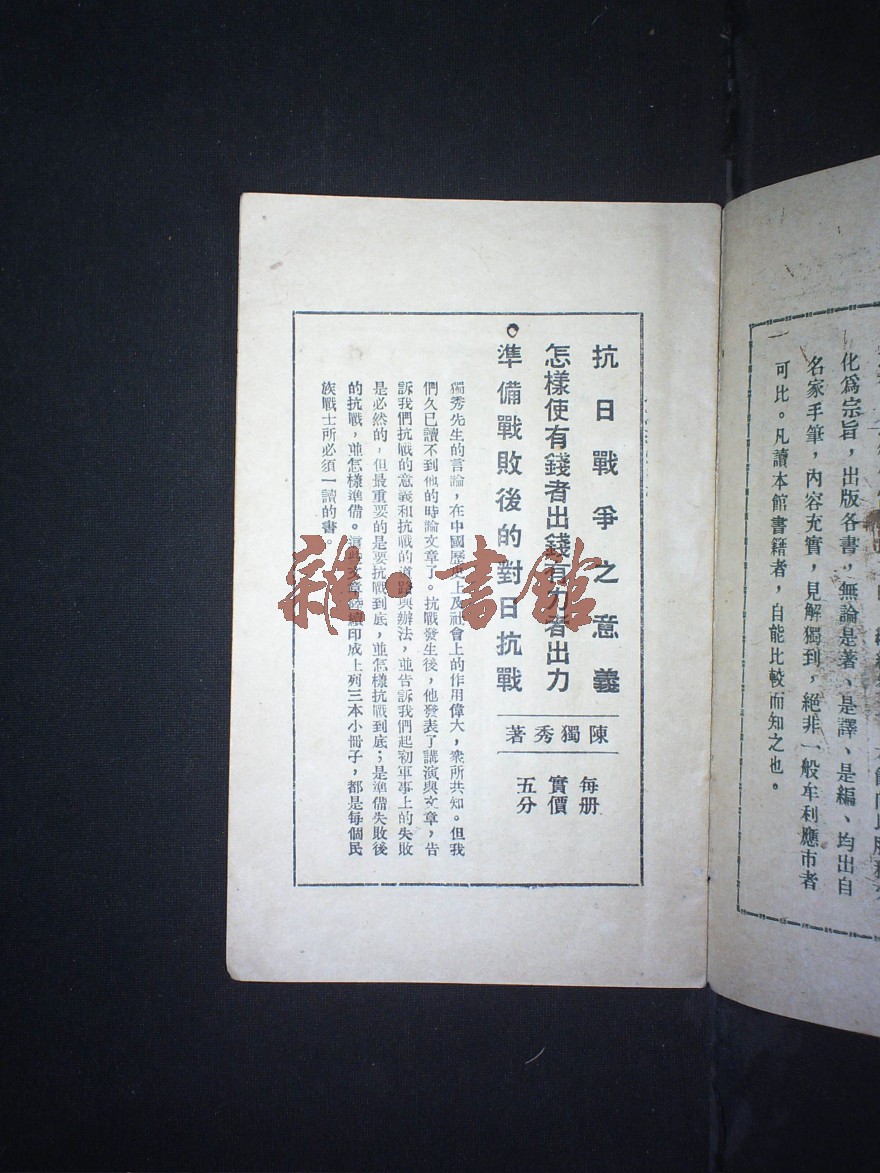 化爲宗旨，出版各書，無論是著、是譯、是編、均出自
名家手筆，內容充實，見解獨到，絕非一般牟利應市者
可比。凡讀本館書籍者，自能比較而知之也。
一
抗日戰爭之意義
怎樣使有錢者出錢有力者出力
準備戰敗後的對日抗戰
陳獨秀著
每册
實價
五分
獨秀先生的言論，在中國歷史上及社會上的作用偉大，衆所共知。但我
們久已讀不到他的時論文章了。抗戰發生後，他發表了講演與文章，告
訴我們抗戰的意義和抗戰的道路與辦法，並告訴我們起初軍事上的失敗
是必然的，但最重要的是要抗戰到底，並怎樣抗戰到底；是準備失敗後
的抗戰，並怎樣準備。這些文章陸續印成上列三本小冊子，都是每個民
族戰士所必須一讀的書。
雜·書館